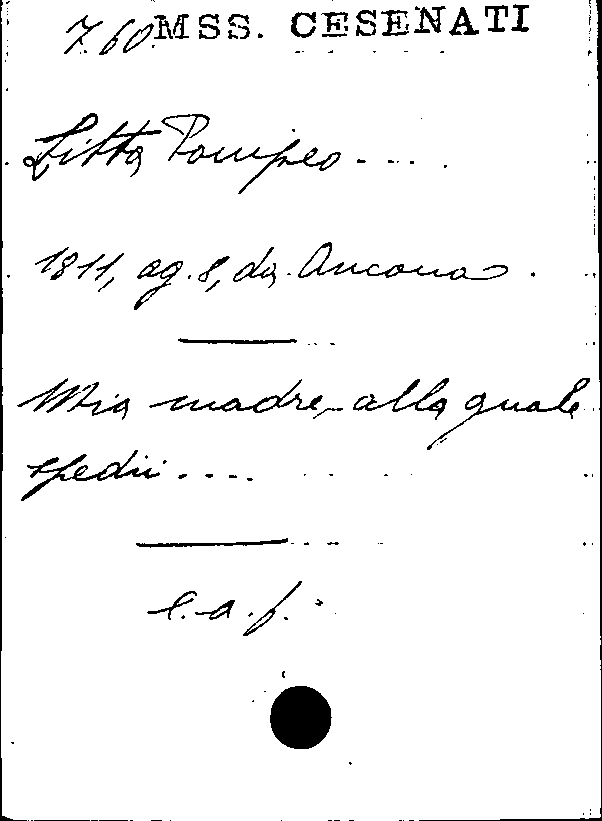 7.60 MSS. CESENATI
Litta Pompeo....
1811, ag. 8, da Ancona.
Mia madre, alla quale
spedii....
l.a.f.